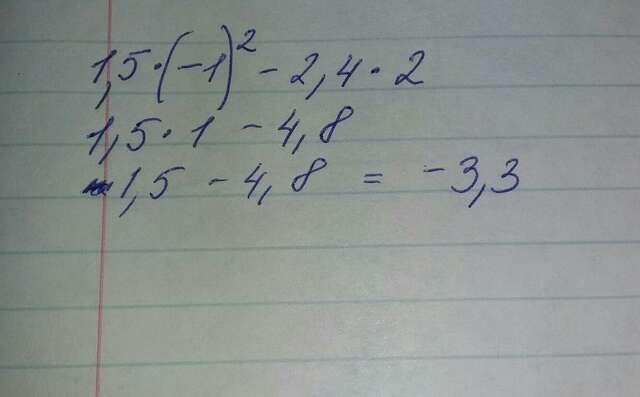 1,5·(-1)² - 2,4·2
1,5·1 - 4,8
1,5 - 4,8 = -3,3